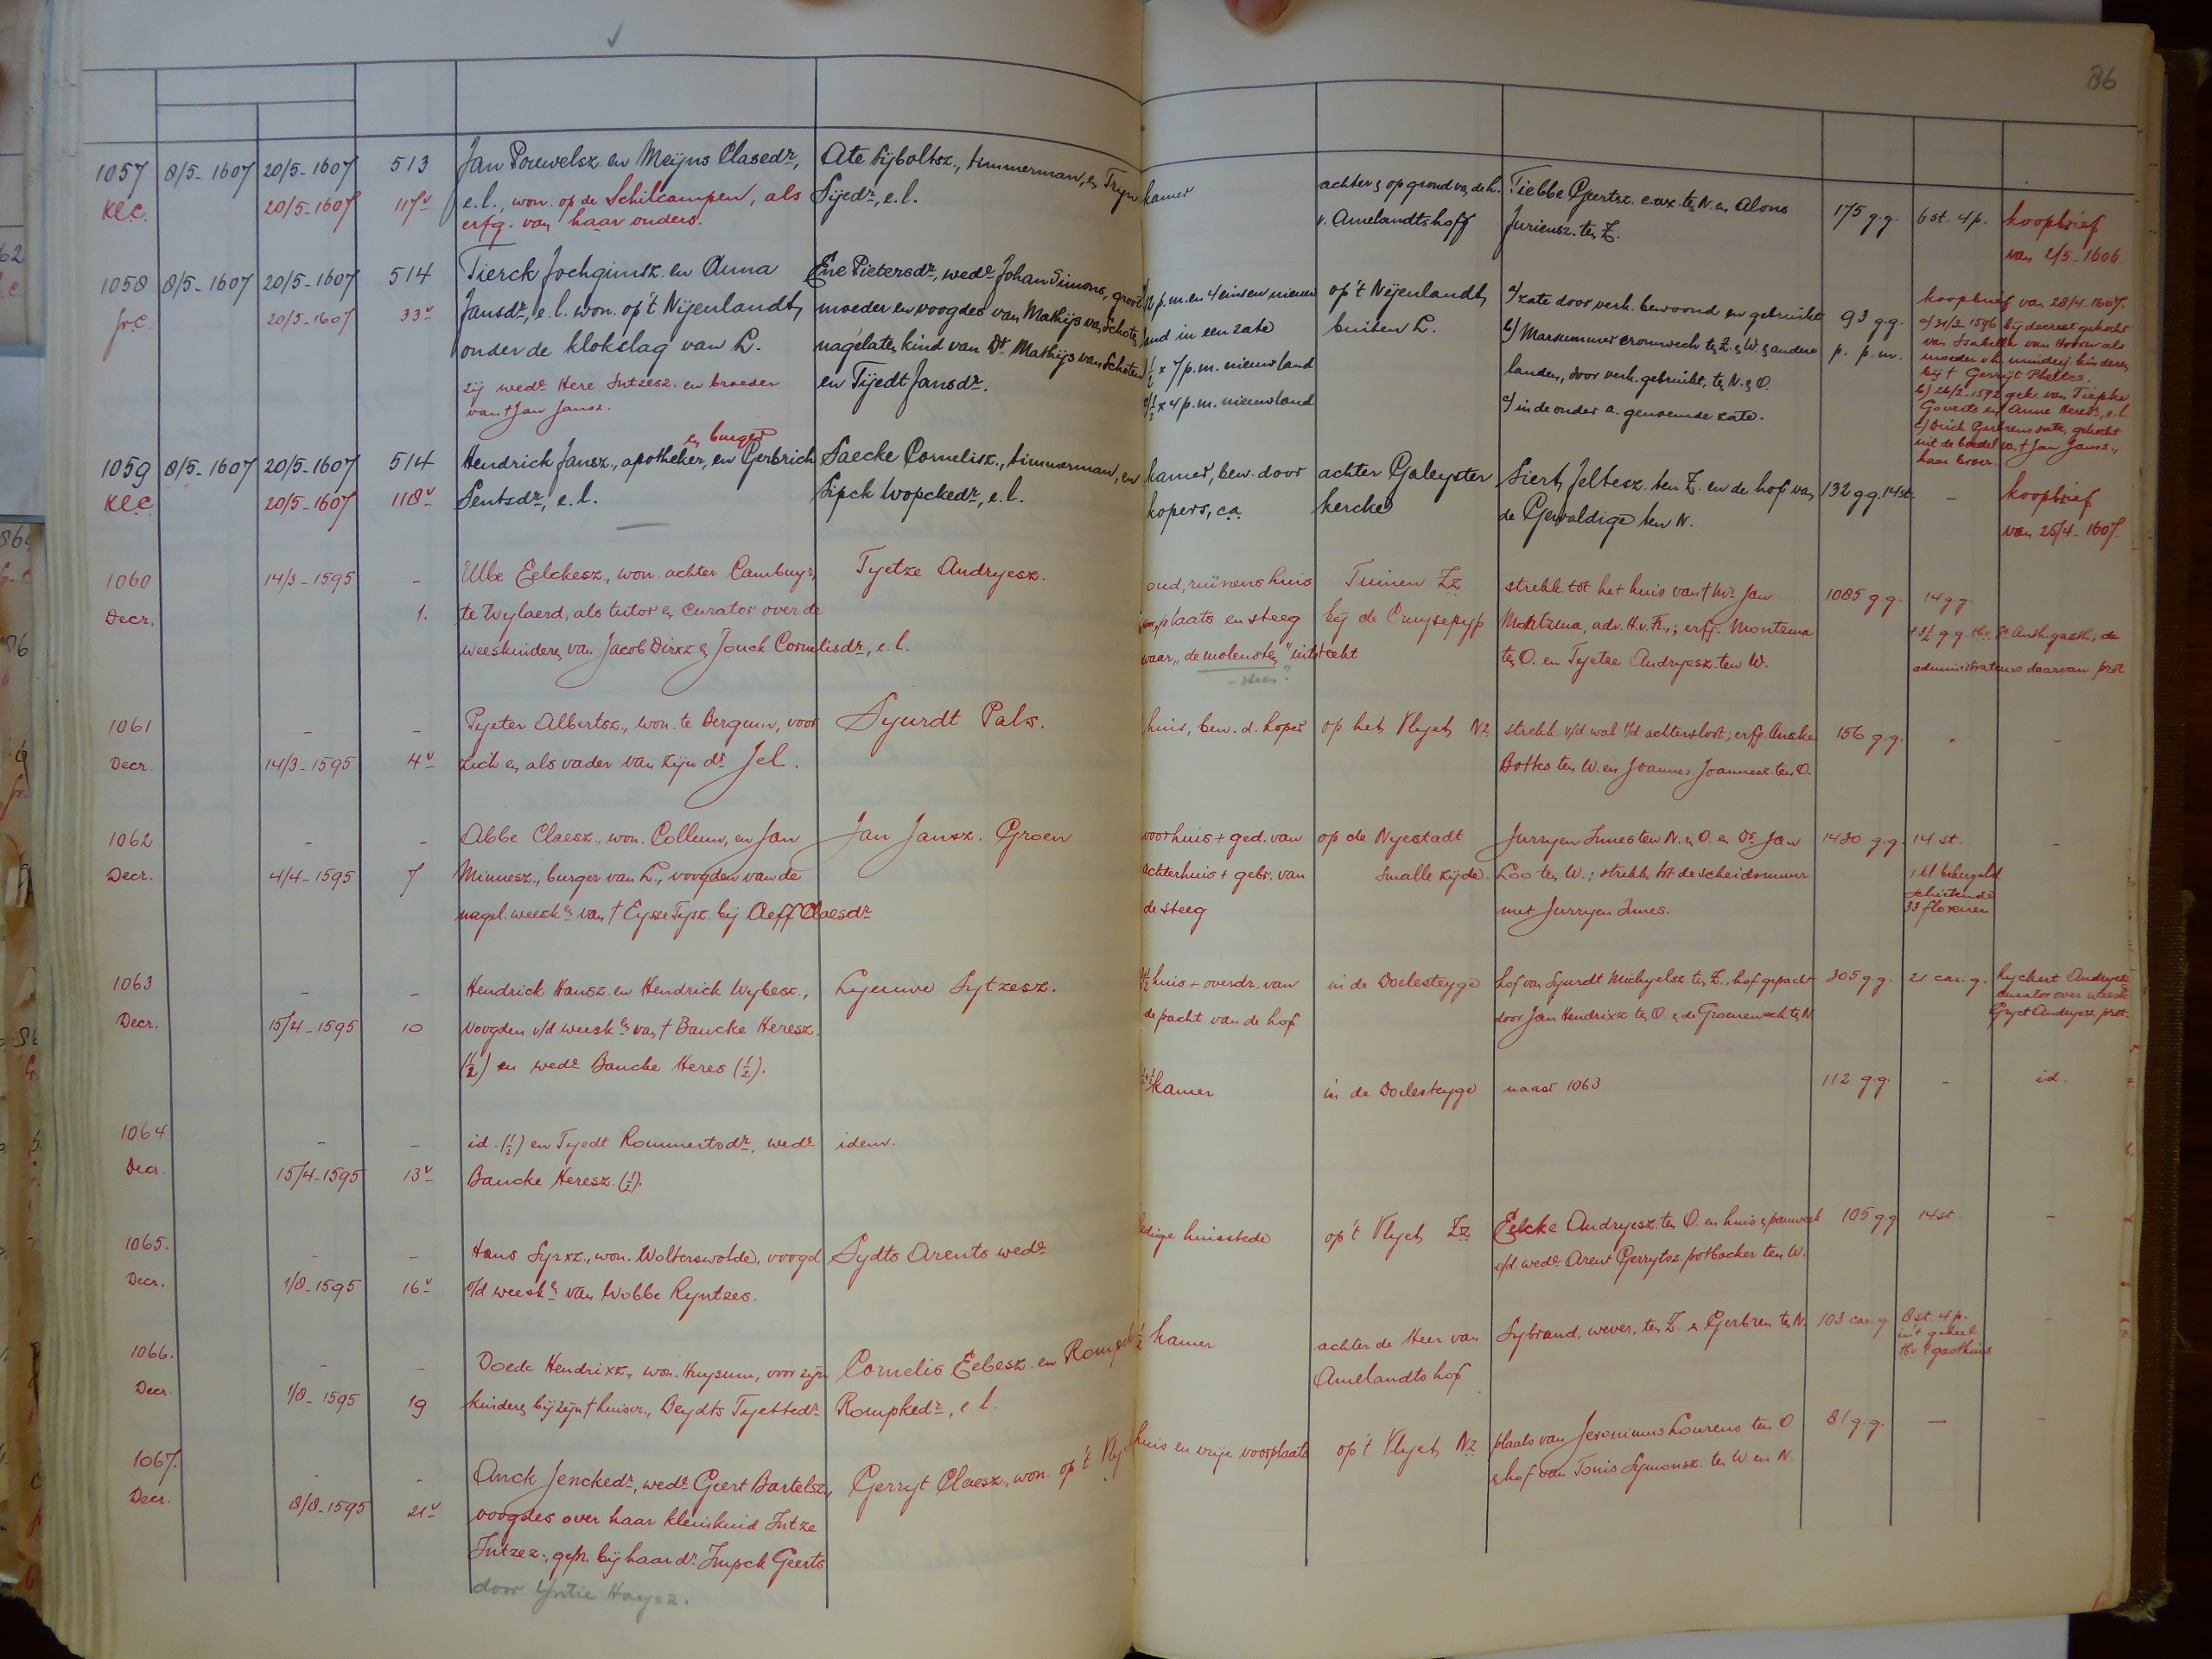 86
1057 8/5-1607 20/5-1607 513 Jan Pouwelsz. en Meijns Clasedr, Ate Sijboltsz., timmerman, en Tryn kamer achter & op grond van de h. Tiebbe Geertsz. e.ux. ten N. en Alons 175 g.g. 6 st. 4 p. koopbrief
Kl.C. 20/5-1607 117v e.l., won. op de Schilcampen, als Sijedr, e.l. v. Amelandtshoff Juriensz. ten Z. van 2/5-1606
erfg. van haar ouders.
1058 8/5-1607 20/5-1607 514 Tierck Jochgimsz. en Anna Ene Pietersdr, wede Johan Simons, groot p.m. en 4 einsen nieuw op 't Nijenlandt, a/ zate door verk. bewoond en gebruikt 93 g.g. koopbrief van 28/4-1607.
Gr.C. 20/5-1607 33v Jansdr, e.l. won. op 't Nijenlandt, moeder en voogdes van Mathijs van Schoten, land in een zate buiten L. b/ Marssummer vrouwech ten Z. & W. & andere p. p.m. a/ 31/3-1596 bij decreet gekocht
onder de klokslag van L. nagelaten kind van Dr Mathijs van Schoten ½ x 7 p.m. nieuwland landen, door verk. gebruikt, ten N. & O. van Isabella van Hoorn als
zij wede Here Intzesz. en broeder en Tijedt Jansdr. ½ x 4 p.m. nieuwland c/ in de onder a. genoemde zate. moeder v.h. minderj. kinderen
van † Jan Jansz. bij † Gerrijt Pheltes.
b/ 26/2-1592 gek. van Tiepke
Goverts en Anne Heredr, e.l.
c/ Dirck Gerbrens zate, gekocht
uit de boedel van † Jan Jansz.,
haar broer.
en burger
1059 8/5-1607 20/5-1607 514 Hendrick Jansz., apotheker, en Gerbrich Saecke Cornelisz., timmerman, en kamer, bew. door achter Galeyster Siert Jeltesz. ten Z. en de hof van 132 g.g. 14 st. - koopbrief
Kl.C. 20/5-1607 118v Sentsdr, e.l. Sipck Wopckedr, e.l. kopers, c.a. kercke de Geweldige ten N. van 25/4-1607.
1060 14/3-1595 - Ulbe Eelckesz., won. achter Cambuyr, Tyetze Andryesz. oud, ruïneus huis Tuinen Zz strekk. tot het huis van † Mr Jan 1085 g.g. 14 g.g.
Decr. 1. te Wylaerd, als tutor en curator over de plaats en steeg bij de Cruysepyp Montzma, adv. H.v.Fr.; erfg. Montzma + 3½ g.g. t.b.v. St Anth. gasth., de
weeskinderen van Jacob Dirxz & Jouck Cornelisdr, e.l. waar "de molensteen" uitsteekt ten O. en Tyetze Andryesz. ten W. administrateurs daarvan prot.
- steen?
1061 - - Pyeter Albertsz., won. te Bergum, voor Syurdt Pals. huis, bew. d. koper op het Vlyet Nz strekk. v/d wal t/d achtersloot; erfg. Anske 156 g.g. - -
Decr. 14/3-1595 4v zich en als vader van zijn dr Jel. Bottes ten W. en Joannes Joannesz. ten O.
1062 - - Abbe Claesz., won. Collum, en Jan Jan Jansz. Groen voorhuis + ged. van op de Nyestadt Jurryen Innes ten N. & O. en Dr Jan 1430 g.g. 14 st. -
Decr. 4/4-1595 7 Minnesz., burger van L., voogden van de achterhuis + gebr. van Smalle zijde. Loo ten W.; strekk. tot de scheidsmuur
nagel. weeskn van † Eysse Tysz. bij Aeff Claesdr de steeg met Jurryen Innes. 33 florenen
1063 - - Hendrick Hansz. en Hendrick Wybesz., Lyeuwe Sytzesz. ½ huis + overdr. van in de Doelesteyge hof van Syurdt Michyelsz ten Z., hof gepacht 305 g.g. 21 car. g. Ryckert Andryesz.
Decr. 15/4-1595 10 voogden v/d weeskn van † Baucke Heresz. de pacht van de hof door Jan Hendrixz ten O. & de Groenewech ten N. curator over weesk.
(½) en wede Baucke Heres (½). Gryet Andryesz prot.
kamer in de Doelesteyge naast 1063 112 g.g. - id.
1064 - - id. (½) en Tyedt Rommertsdr, wede idem.
Decr. 15/4-1595 13v Baucke Heresz. (½).
1065. - - Hans Syrxz., won. Wolterswolde, voogd Sydts Arents wede ledige huisstede op 't Vlyet Zz Eelcke Andryesz. ten O. en huis & panwerk 105 g.g. 14 st. -
Decr. 1/8-1595 16v v/d weeskn van Wobbe Ryntzes. v/d wede Arent Gerrytsz. potbacker ten W.
1066. - - Doede Hendrixz., won. Huysum, voor zijn Cornelis Eebesz. en Rompck ½ kamer achter de Heer van Sybrand, wever, ten Z. & Gerbren ten N. 103 car. g. 8 st. 4 p. -
Decr. 1/8-1595 19 kinderen bij zijn † huisvr., Beydts Tyettedr Rompkedr, e.l. Amelandts hof in 't geheel
t.b.v. 't gasthuis
1067. - - Anck Jenckedr, wede Geert Bartelsz, Gerryt Claesz., won. op 't Vlyet huis en vrije voorplaats op 't Vlyet Nz plaats van Jeronimus Lourens ten O. 81 g.g. — -
Decr. 8/8-1595 21v voogdes over haar kleinkind Intze & hof van Tonis Symonsz. ten W. en N.
Intzez., gepr. bij haar dr Impck Geerts
door Yntie Hayez.